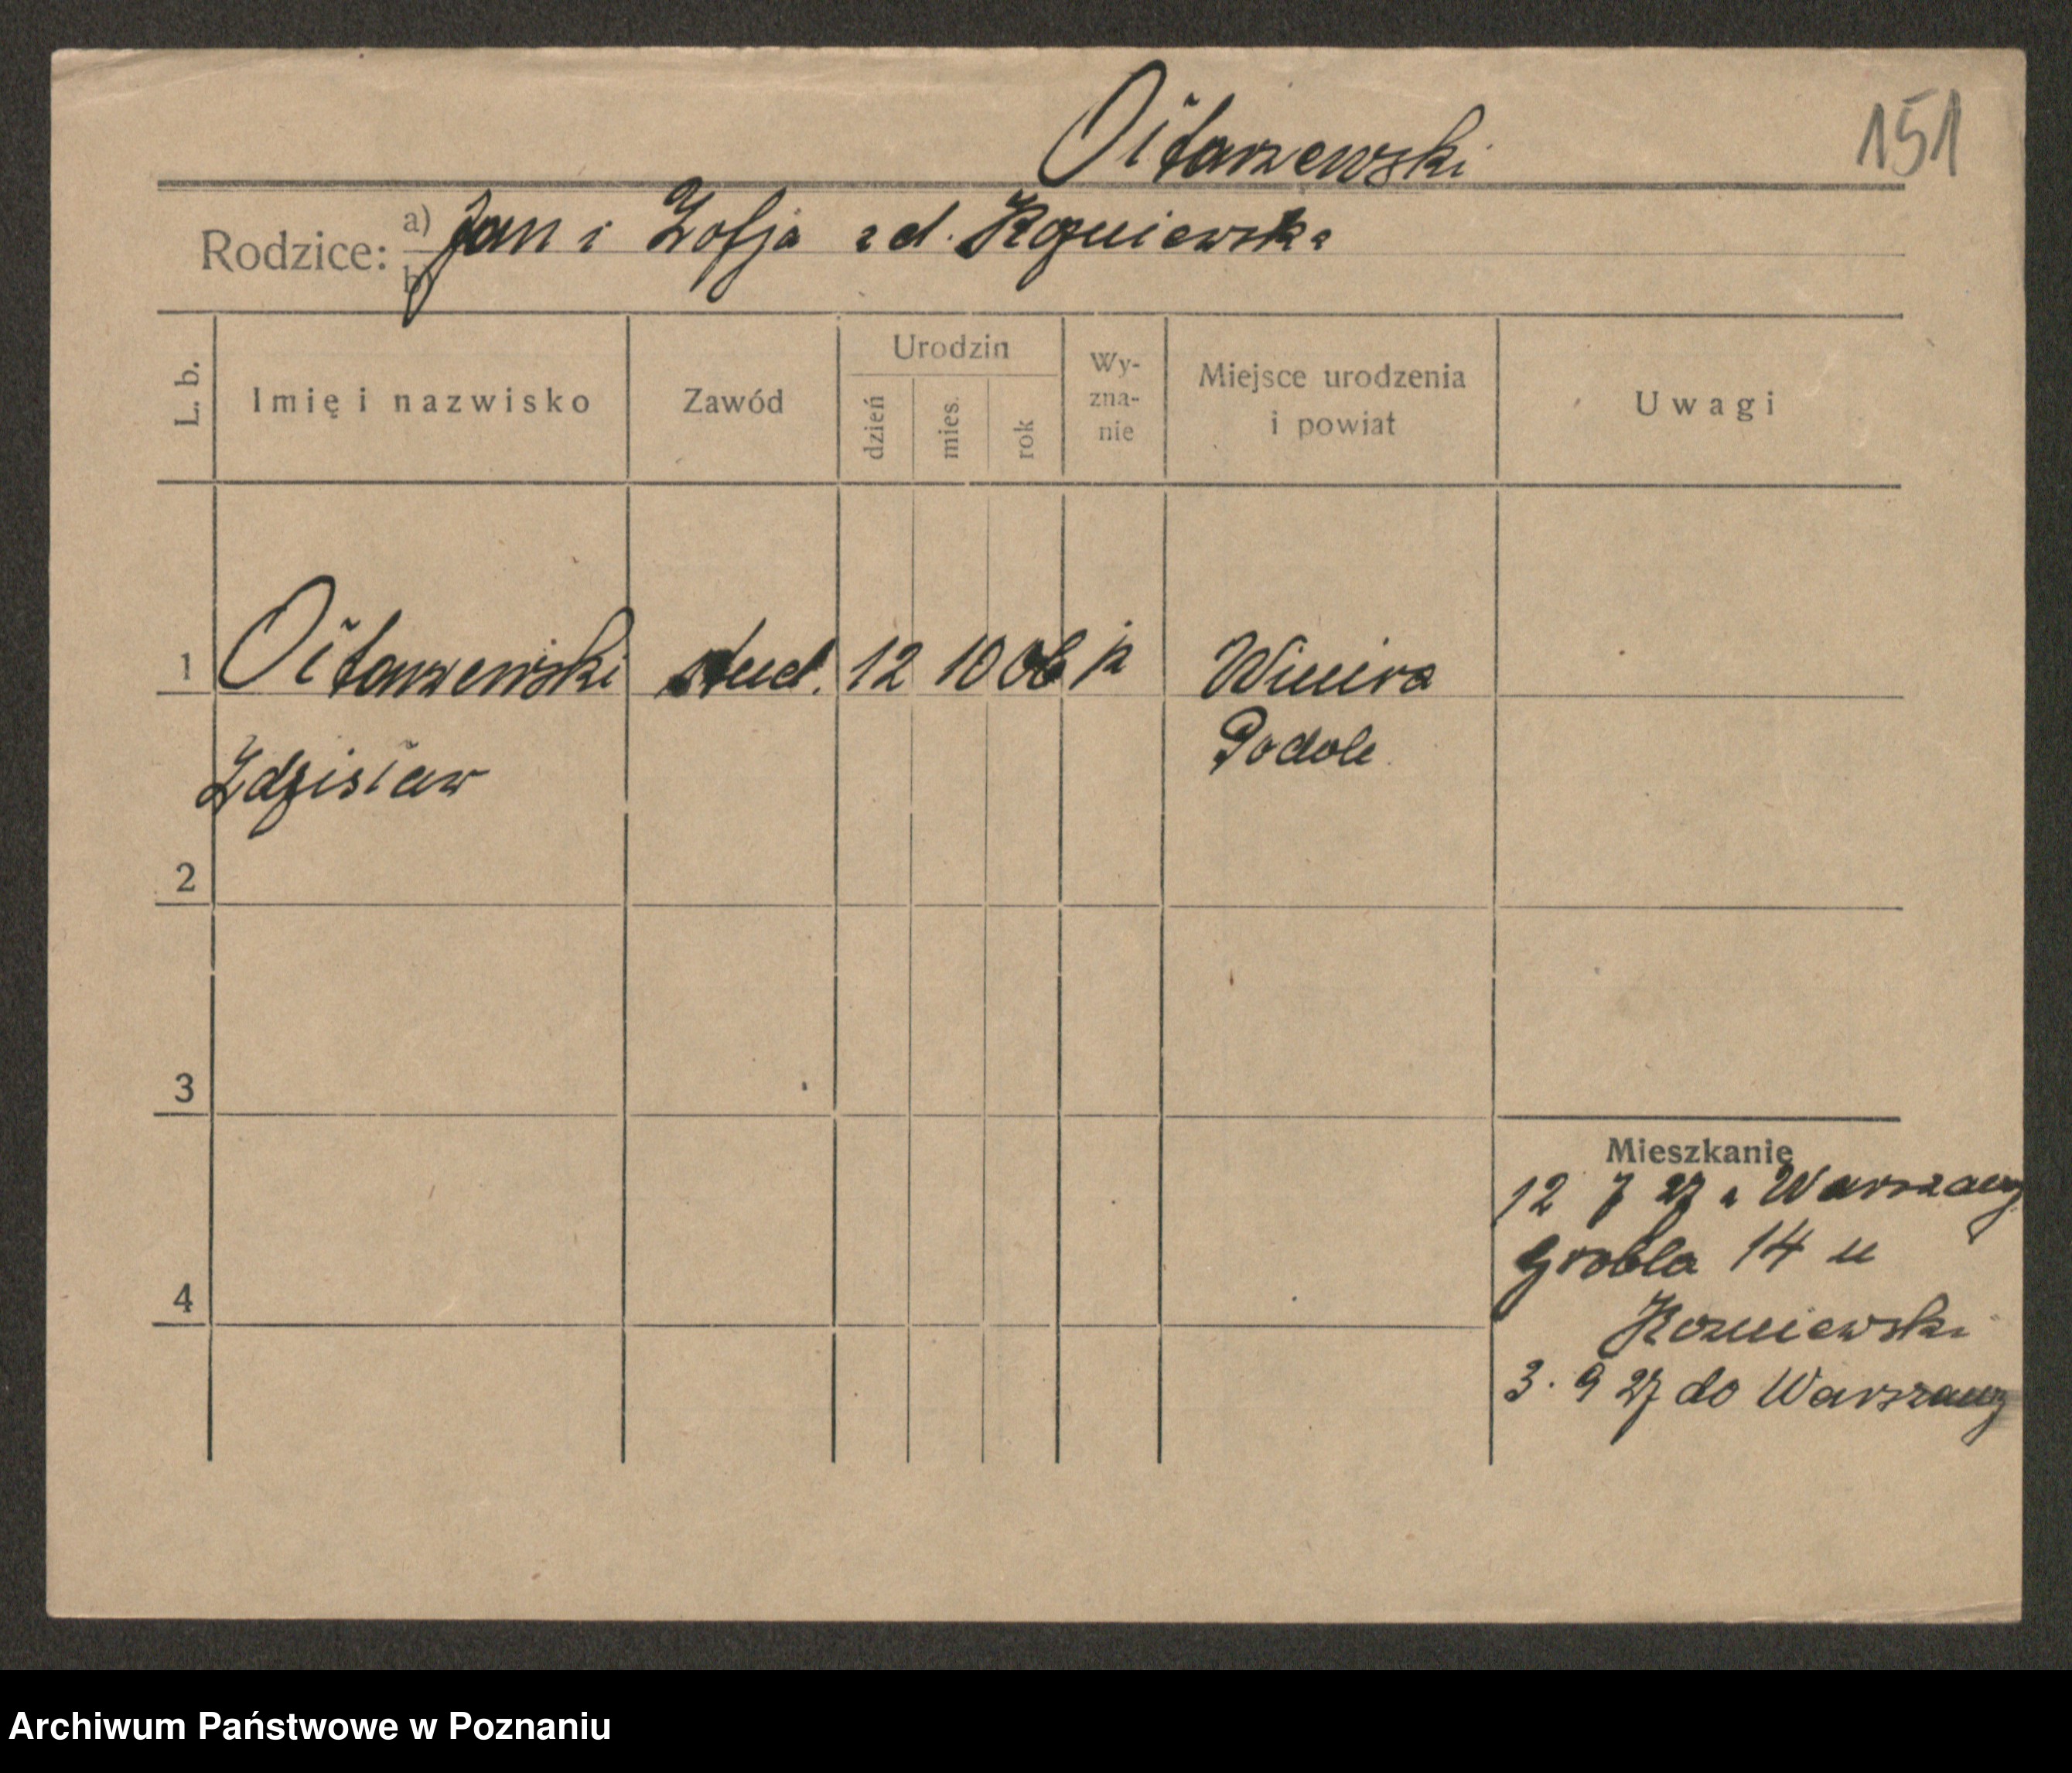 Oitarzewski
151
Rodzice: a) Jan i Zofja z d. Kozniewska
b)
L. b.
Imię i nazwisko
Zawód
Urodzin
dzień
mies.
rok
Wy-
zna-
nie
Miejsce urodzenia
i powiat
Uwagi
1 stud. 12 10 06 k
Zdzisław
Podole
2
3
4
Mieszkanie
12 7 27 z Warszawy
Grobla 14 u
Kozniewski
3. 9 27 do Warszawy
Archiwum Państwowe w Poznaniu